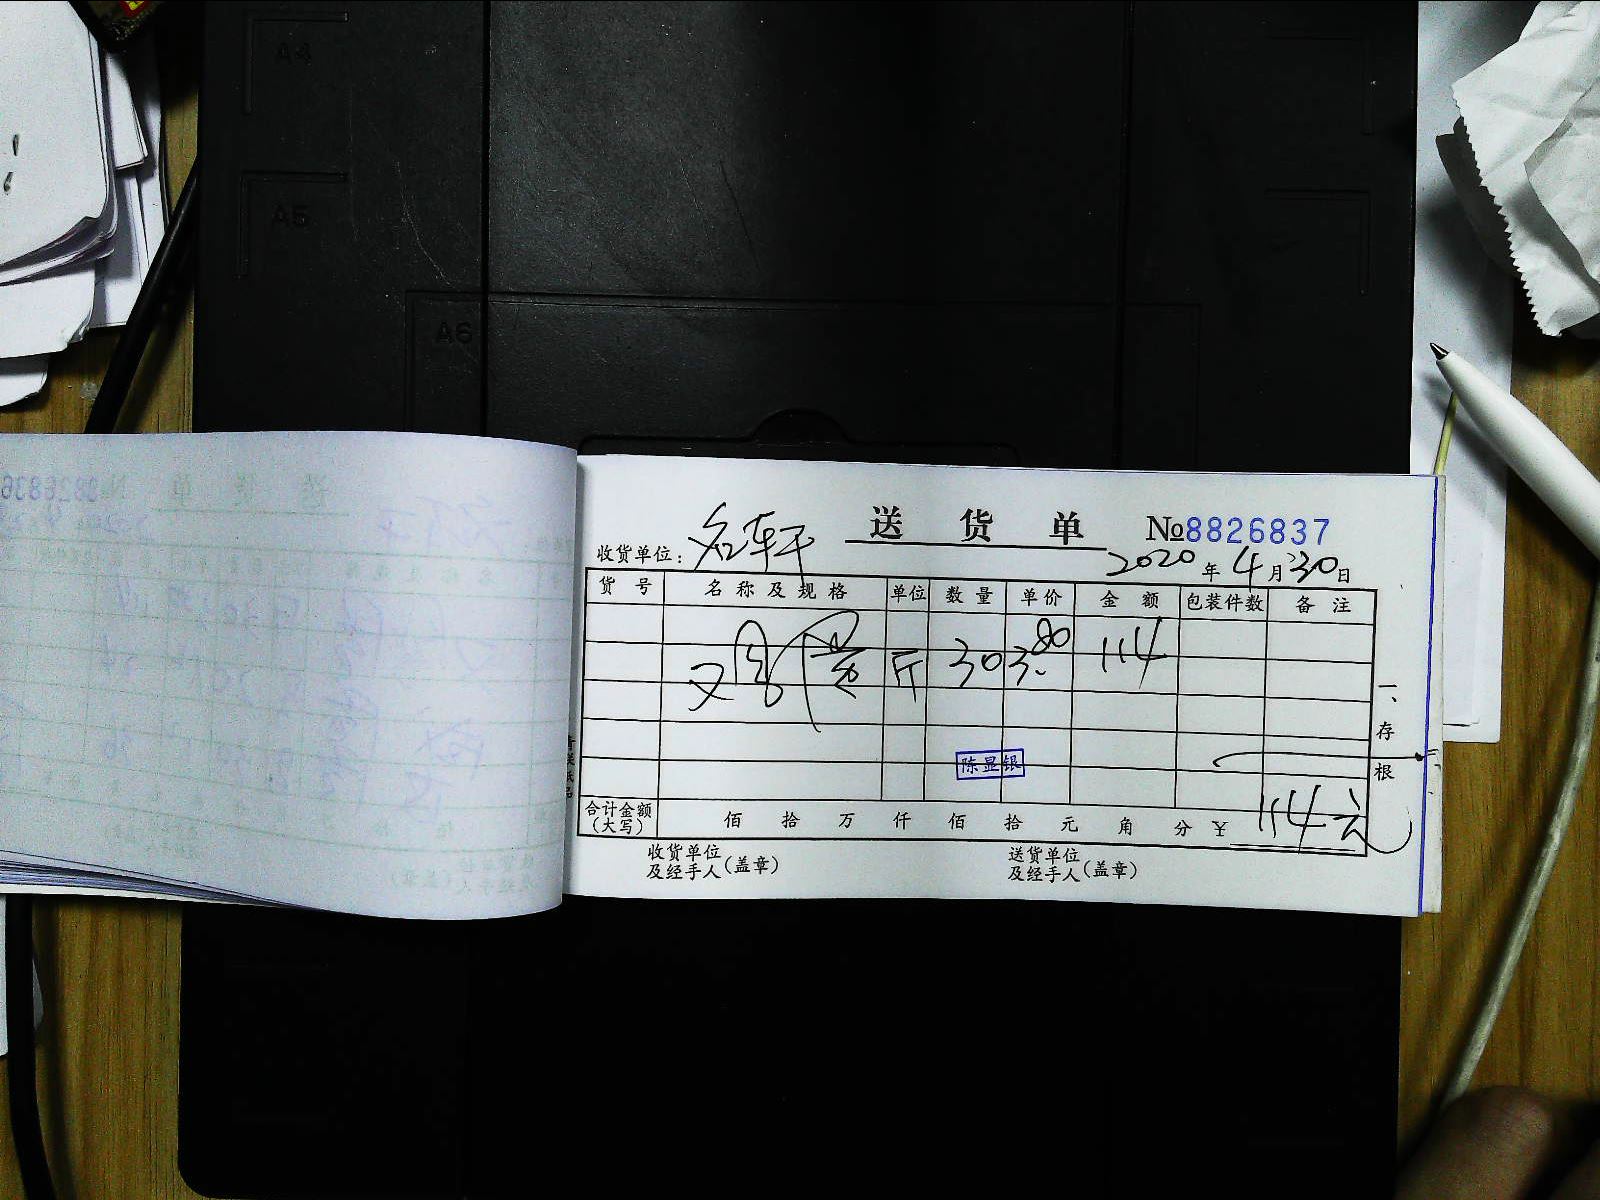 A4
A5
A6
送货单 №8826837
收货单位: 名轩 2020年4月30日
货号 名称及规格 单位 数量 单价 金额 包装件数 备注
斤 30 3.80 114
陈显银
合计金额(大写) 佰 拾 万 仟 佰 拾 元 角 分 ¥ 114元
收货单位及经手人(盖章) 送货单位及经手人(盖章)
一、存根